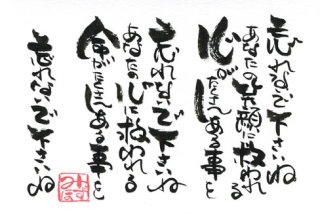 忘れないで下さいね
あなたの笑顔に救われる
心がたくさんある事を
忘れないで下さいね
あなたの心に救われる
命がたくさんある事を
忘れないで下さいね